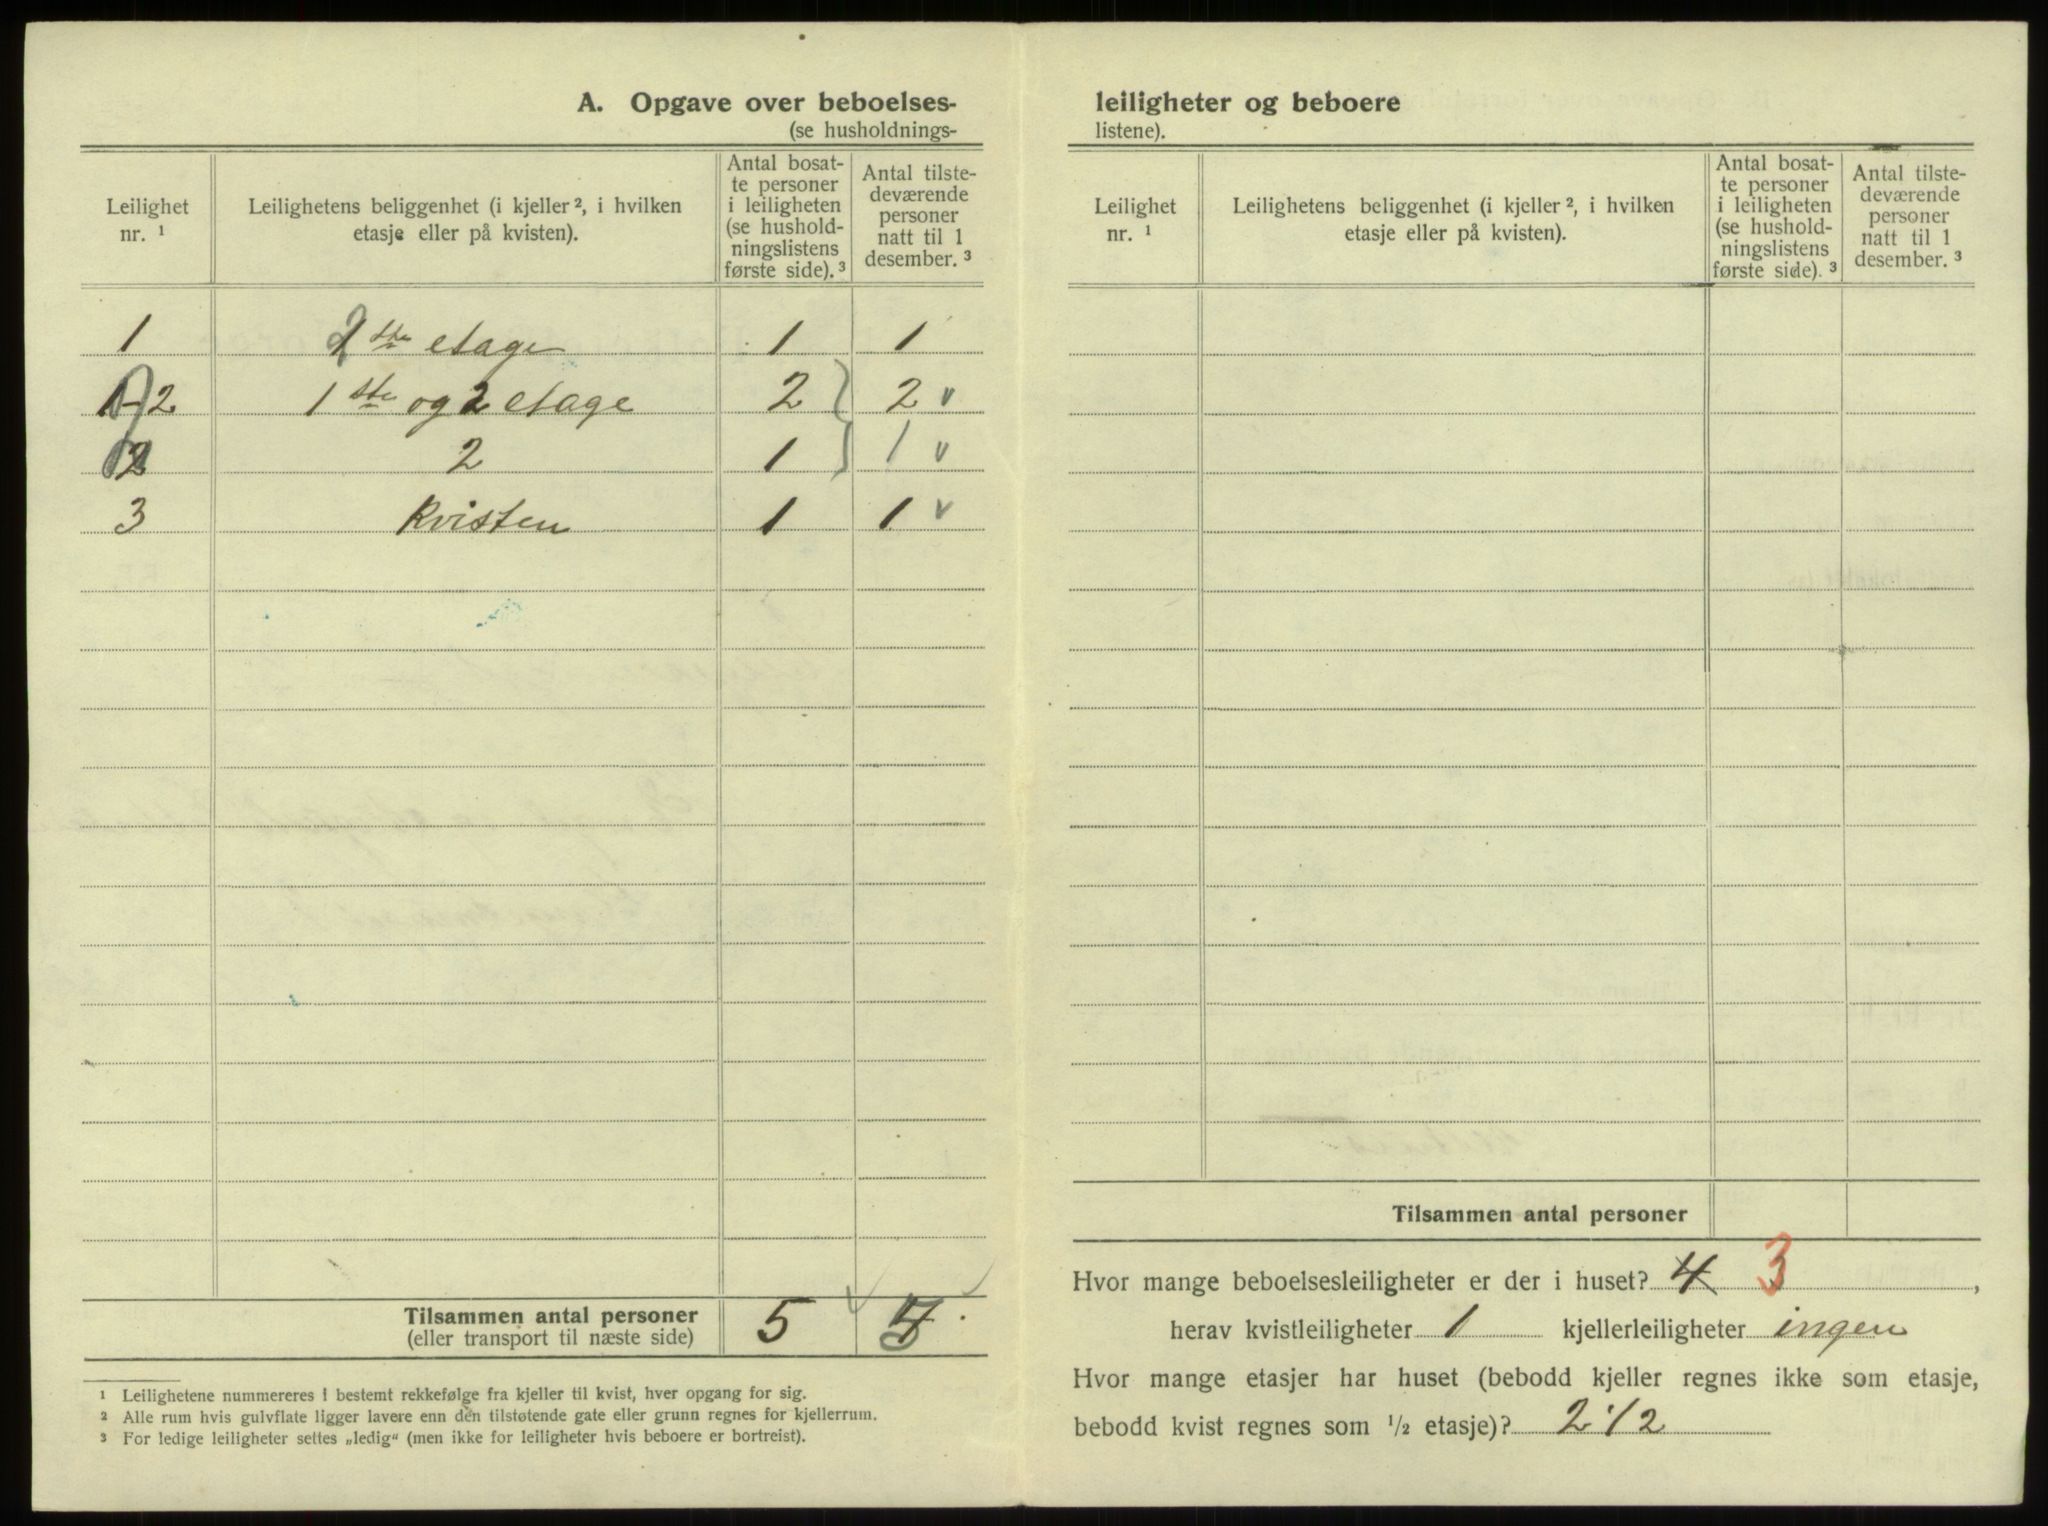 A. Opgave over beboelses-
(se husholdnings-
Leilighet nr. ¹
Leilighetens beliggenhet (i kjeller ², i hvilken etasje eller på kvisten).
Antal bosat-
te personer
i leiligheten
(se hushold-
ningslistens
første side). ³
Antal tilste-
deværende
personer
natt til 1
desember. ³
1 ste etage 1 1
1-2 1 ste og 2 etage 2 2 v
2 2 1 1 v
3 Kvisten 1 1 v
Tilsammen antal personer 5
(eller transport til næste side)
¹ Leilighetene nummereres i bestemt rekkefølge fra kjeller til kvist, hver opgang for sig.
² Alle rum hvis gulvflate ligger lavere enn den tilstøtende gate eller grunn regnes for kjellerrum.
³ For ledige leiligheter settes „ledig“ (men ikke for leiligheter hvis beboere er bortreist).
leiligheter og beboere
listene).
Leilighet nr. ¹
Leilighetens beliggenhet (i kjeller ², i hvilken etasje eller på kvisten).
Antal bosat-
te personer
i leiligheten
(se hushold-
ningslistens
første side). ³
Antal tilste-
deværende
personer
natt til 1
desember. ³
Tilsammen antal personer
Hvor mange beboelsesleiligheter er der i huset? 4 3,
herav kvistleiligheter 1 kjellerleiligheter ingen
Hvor mange etasjer har huset (bebodd kjeller regnes ikke som etasje,
bebodd kvist regnes som ½ etasje)? 2 1/2